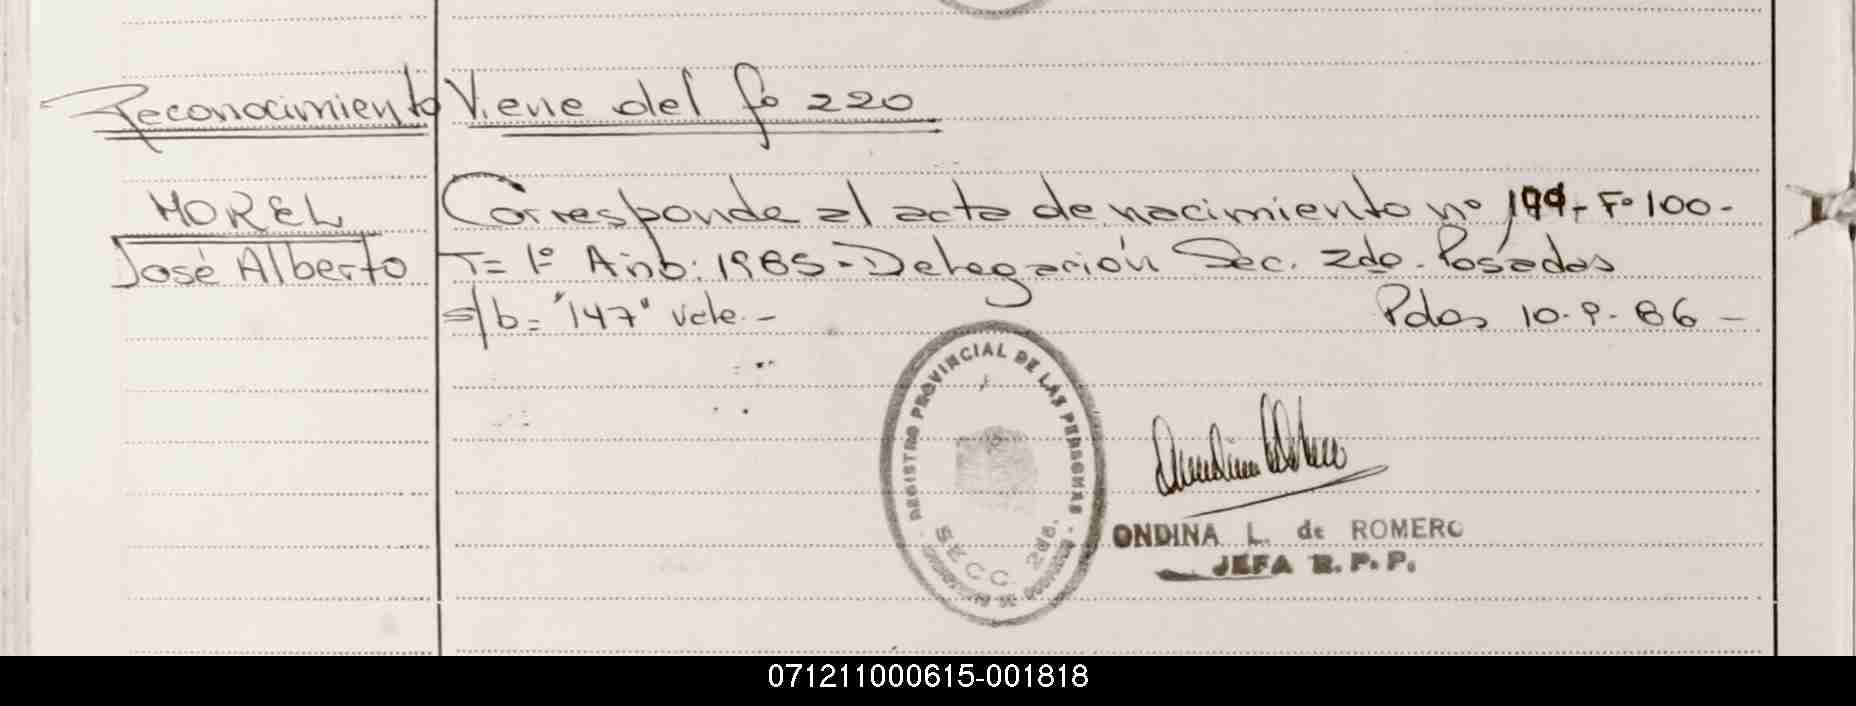 Reconocimiento Viene del fo 220
MOREL
José Alberto
Corresponde al acta de nacimiento nº 199 - Fº 100 -
T= 1º Año: 1985 - Delegación Sec. 2do. Posadas
s/b = "147" vale. - Pdas 10-9-86 -
REGISTRO PROVINCIAL DE LAS PERSONAS
SECC. 2da.
ONDINA L. de ROMERO
JEFA R.P.P.
071211000615-001818